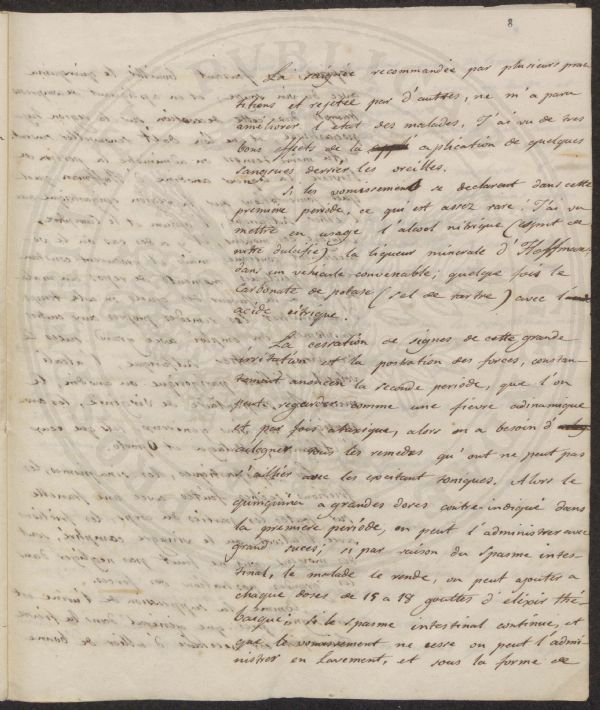 8
La saignée recommandée par plusieurs prac
titiens et rejetée par d'autres, ne m'a paru
améliorer l'état des malades. J'ai vu de tres
bons effects de la aplication de quelques
sangsues derrier les oreilles.
Si les vomissements se declarent dans cette
premiere période, ce qui est assez rare: J'ai vu
mettre en usage l'alcool nitrique (esprit de
nitre dulcifié) la liqueur minerale d'Hoffmann
dans un vehicule convenable; quelque fois le
Carbonate de potase (sel de tartre) avec l'
acide citrique.
La cessation de signes de cette grande
irritation et la postration des forces, constan-
tement anoncen la seconde période, que l'on
peut regarder comme une fievre adinamique
et par fois ataxique, alors on a besoin d'
éloigner tous les remedes qu'ont ne peut pas
s'allier avec les excitant toniques. Alors le
quinquina a grandes doses contre-indiqué dans
la première période, on peut l'administrer avec
grand succes; si par raison du spasme intes-
tinal, le malade le rende, on peut ajouter a
chaque doses de 15 a 18 gouttes d'elixir thé-
baique; si le spasme intestinal continue, et
que le vomissement ne cesse on peut l'admi-
nistrer en Lavement, et sous la forme de